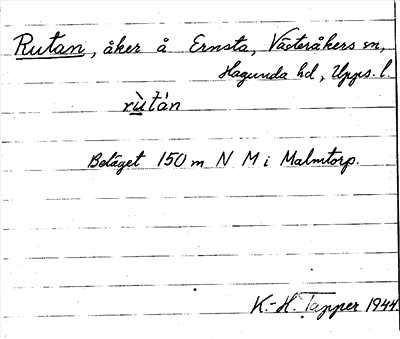 Rutan, åker å Ernsta, Västeråkers sn,
Hagunda hd, Upps. l.
rùtán
Beläget 150 m N M i Malmtorp.
K.-H. Tapper 1944.